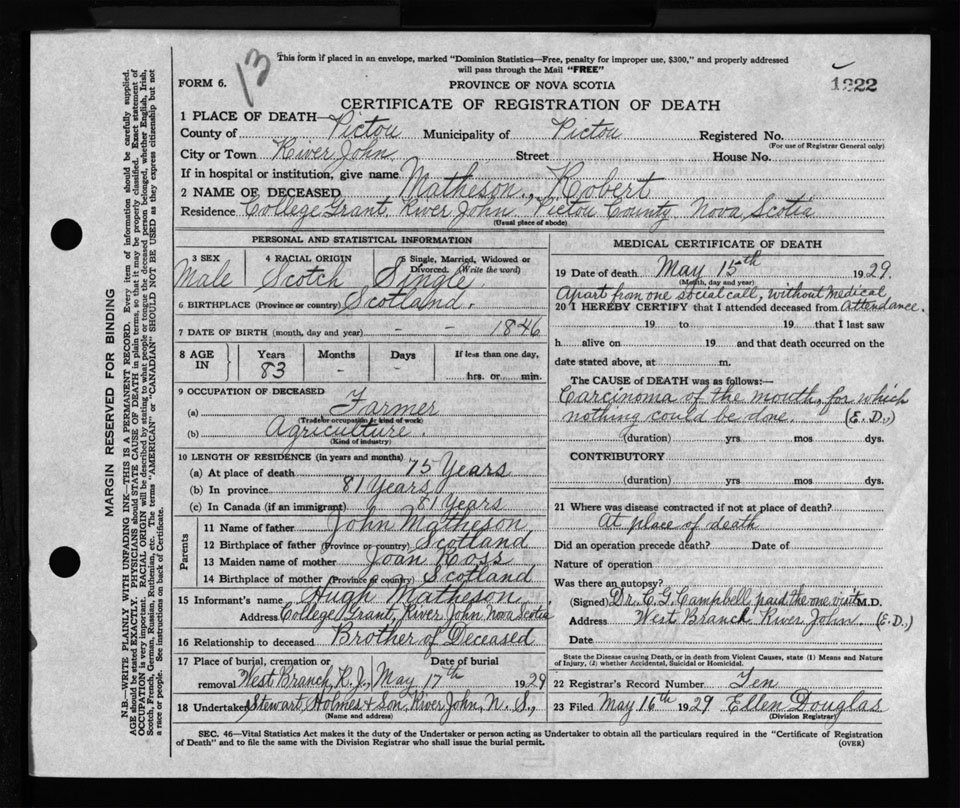 13
This form if placed in an envelope, marked "Dominion Statistics—Free, penalty for improper use, $300," and properly addressed
will pass through the Mail "FREE"
FORM 6.
PROVINCE OF NOVA SCOTIA
1222
CERTIFICATE OF REGISTRATION OF DEATH
1 PLACE OF DEATH—
County of Pictou Municipality of Pictou Registered No.
(For use of Registrar General only)
City or Town River John Street House No.
If in hospital or institution, give name
2 NAME OF DECEASED Matheson, Robert
Residence College Grant, River John Pictou County Nova Scotia
(Usual place of abode)
PERSONAL AND STATISTICAL INFORMATION
3 SEX 4 RACIAL ORIGIN 5 Single, Married, Widowed or Divorced. (Write the word)
Male Scotch Single.
6 BIRTHPLACE (Province or country) Scotland.
7 DATE OF BIRTH (month, day and year) - - 1846
8 AGE IN Years Months Days If less than one day,
83 - - hrs. or min.
9 OCCUPATION OF DECEASED
(a) Farmer
(Trade or occupation or kind of work)
(b) Agriculture.
(Kind of industry)
10 LENGTH OF RESIDENCE (in years and months)
(a) At place of death 75 Years
(b) In province 81 Years
(c) In Canada (if an immigrant) 81 Years
Parents
11 Name of father John Matheson
12 Birthplace of father (Province or country) Scotland
13 Maiden name of mother Joan Ross
14 Birthplace of mother (Province or country) Scotland
15 Informant's name Hugh Matheson
Address College Grant, River John Nova Scotia
16 Relationship to deceased Brother of Deceased
17 Place of burial, cremation or removal Date of burial
West Branch, R. J., May 17th 1929
18 Undertaker Stewart, Holmes & Son, River John, N. S.,
(Name and address)
MEDICAL CERTIFICATE OF DEATH
19 Date of death May 15th 1929.
(Month, day and year)
Apart from one social call, without medical attendance.
20 I HEREBY CERTIFY that I attended deceased from
19 to 19 that I last saw
h alive on 19 and that death occurred on the
date stated above, at m.
The CAUSE of DEATH was as follows:—
Carcinoma of the mouth, for which
nothing could be done. (E. D.,)
(duration) yrs mos dys.
CONTRIBUTORY
(duration) yrs. mos. dys.
21 Where was disease contracted if not at place of death?
At place of death
Did an operation precede death? Date of
Nature of operation
Was there an autopsy?
(Signed) Dr. C. G. Campbell paid the one visit M.D.
Address West Branch River John. (E. D.,)
Date
State the Disease causing Death, or in death from Violent Causes, state (1) Means and Nature
of Injury, (2) whether Accidental, Suicidal or Homicidal.
22 Registrar's Record Number Ten
23 Filed May 16th 1929 Ellen Douglas
(Division Registrar)
SEC. 46—Vital Statistics Act makes it the duty of the Undertaker or person acting as Undertaker to obtain all the particulars required in the "Certificate of Registration
of Death" and to file the same with the Division Registrar who shall issue the burial permit.
(OVER)
MARGIN RESERVED FOR BINDING
N.B.—WRITE PLAINLY WITH UNFADING INK—THIS IS A PERMANENT RECORD. Every item of information should be carefully supplied.
AGE should be stated EXACTLY. PHYSICIANS should STATE CAUSE OF DEATH in plain terms, so that it may be properly classified. Exact statement of
OCCUPATION is very important. RACIAL ORIGIN will be described by stating to what people or tongue the deceased person belonged, whether English, Irish,
Scotch, French, German, Russian, Ruthenian, etc. The terms "AMERICAN" or "CANADIAN" SHOULD NOT BE USED as they express citizenship but not
a race or people. See instructions on back of Certificate.